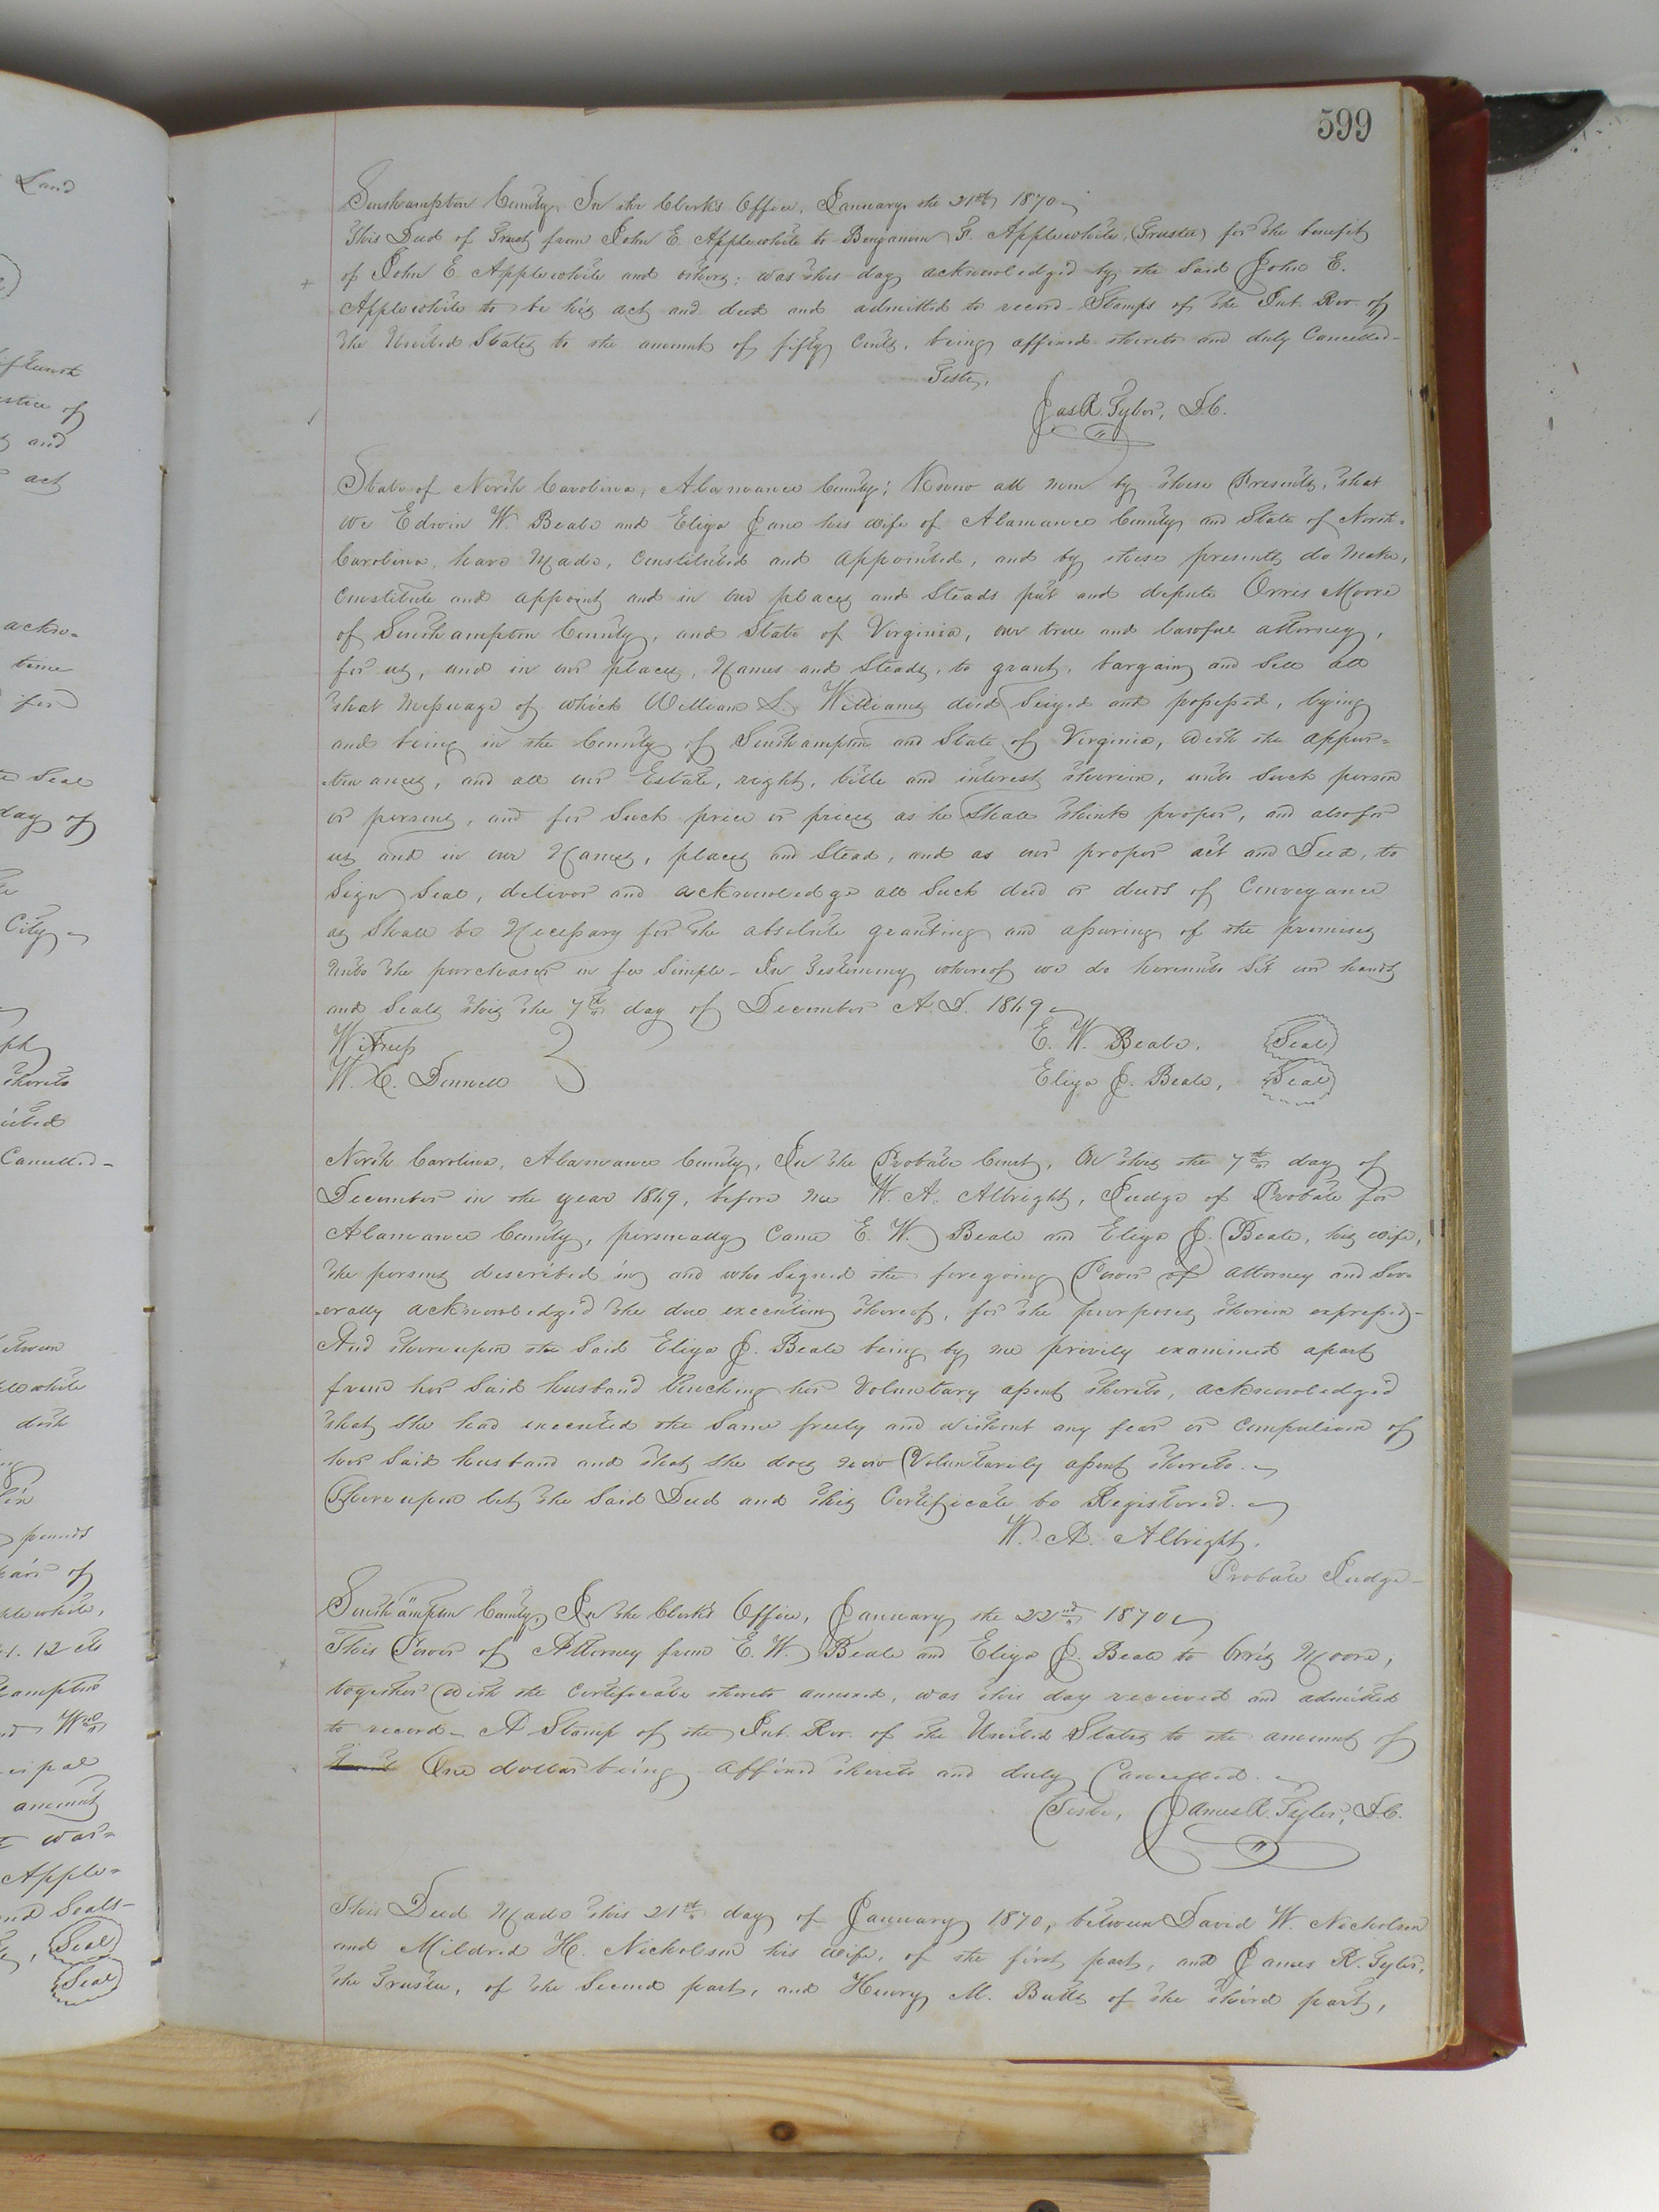 599
Southampton County, In the Clerk's Office, January the 21st, 1870
This Deed of Trust from John E. Applewhite to Benjamin F. Applewhite, (Trustee) for the benefit
of John E. Applewhite and others; was this day acknowledged by the said John E.
Applewhite to be his act and deed and admitted to record. Stamps of the Int. Rev. of
the United States to the amount of fifty Cents, being affixed thereto and duly Cancelled—
Teste,
Jas R. Tyler, D.C.
State of North Carolina, Alamance County; Know all men by these Presents, that
we Edwin W. Beale and Eliza Jane his wife of Alamance County and State of North-
Carolina, have Made, Constituted and appointed, and by these presents do Make,
Constitute and appoint and in our places and Steads put and depute Orris Moore
of Southampton County, and State of Virginia, our true and lawful attorney,
for us, and in our places, Names and Steads, to grant, bargain and Sell all
that Messuage of which William S. Williams died Seized and possessed, lying
and being in the County of Southampton and State of Virginia, with the appur=
=tenances, and all our Estate, right, title and interest therein, unto Such person
or persons, and for Such price or prices as he Shall think proper, and also for
us and in our Names, places and Stead, and as our proper act and Deed, to
Sign Seal, deliver and acknowledge all Such deed or deeds of Conveyance
as Shall be Necessary for the absolute granting and assuring of the premises
Unto the purchaser in fee Simple— In Testimony whereof we do hereunto Set our hands
and Seals this the 7th day of December A.D. 1869
Witness E. W. Beale, (Seal)
W. C. Donnell Eliza J. Beale, (Seal)
North Carolina, Alamance County, In the Probate Court, On this the 7th day of
December in the year 1869, before me W. A. Albright, Judge of Probate for
Alamance County, personally Came E. W. Beale and Eliza J. Beale, his wife,
the persons described in and who Signed the foregoing Power of attorney and Sev=
=erally acknowledged the due execution thereof, for the purposes therein expressed—
And thereupon the Said Eliza J. Beale being by me privily examined apart
from her Said husband touching her Voluntary assent thereto, acknowledged
that She had executed the Same freely and without any fear or Compulsion of
her Said husband and that She does now Voluntarily assent thereto.
Thereupon let the Said Deed and this Certificate be Registered.
W. A. Albright.
Probate Judge—
Southampton County, In the Clerk's Office, January the 22nd 1870
This Power of Attorney from E. W. Beale and Eliza J. Beale to Orris Moore,
together with the Certificate thereto annexed, was this day received and admitted
to record— A Stamp of the Int. Rev. of the United States to the amount of
One dollar being affixed thereto and duly Cancelled.
Teste, James R. Tyler, D.C.
This Deed Made this 21st day of January 1870, between David W. Nicholson
and Mildred H. Nicholson his wife, of the first part, and James R. Tyler,
the Trustee, of the Second part, and Henry M. Butts of the third part,